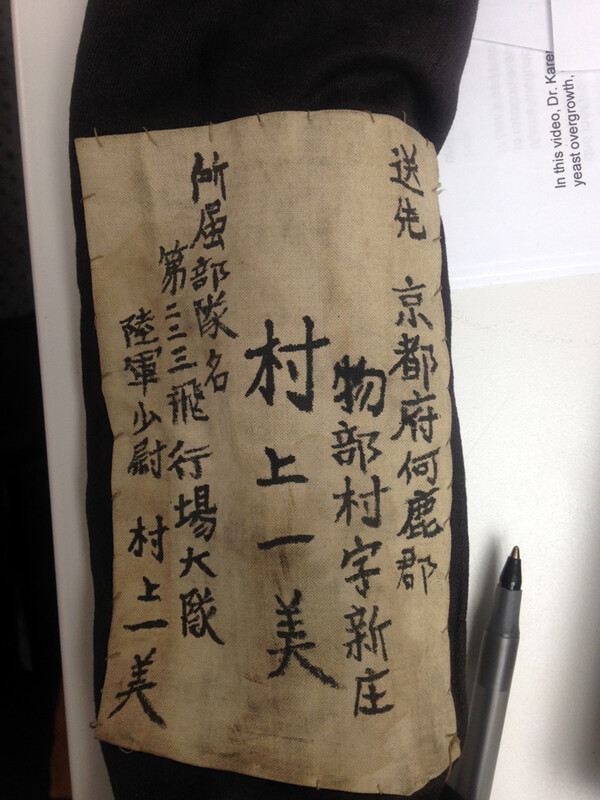 送先 京都府何鹿郡
物部村字新庄
村上一美
所属部隊名
第二二三飛行場大隊
陸軍少尉 村上一美
In this video, Dr. Kare
yeast overgrowth,